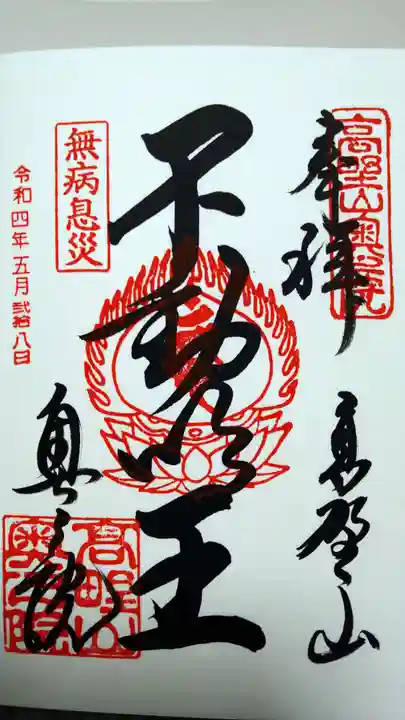 奉拝
高野山
高野山奥之院
不動明王
無病息災
令和四年五月弐拾八日
奥之院